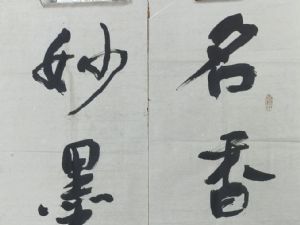 名香
妙墨